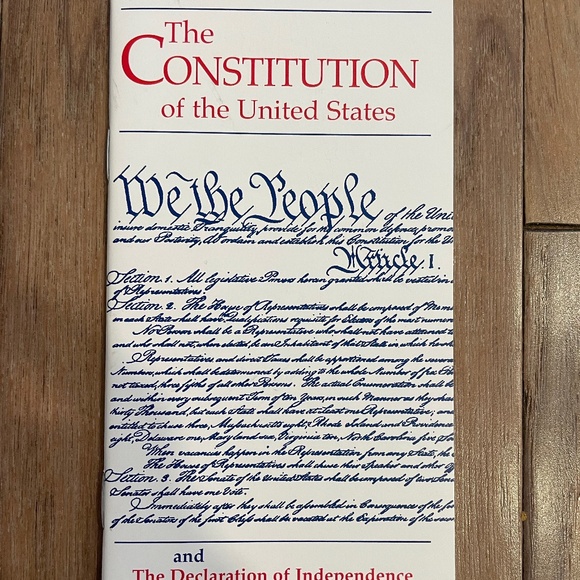 The
CONSTITUTION
of the United States
We the People of the Unit
insure domestic Tranquility, provide for the common defence, promo
and our Posterity, do ordain and establish this Constitution for the U
Article. I.
Section. 1. All legislative Powers herein granted shall be vested in
of Representatives.
Section. 2. The House of Representatives shall be composed of Mem
in each State shall have Qualifications requisite for Electors of the most numer
No Person shall be a Representative who shall not have attained to
and who shall not, when elected, be an Inhabitant of that State in which he sha
Representatives and direct Taxes shall be apportioned among the severa
Numbers, which shall be determined by adding to the whole Number of free
not taxed, three fifths of all other Persons. The actual Enumeration shall be
and within every subsequent Term of ten Years, in such Manner as they sha
thirty Thousand, but each State shall have at Least one Representative; and
entitled to chuse three, Massachusetts eight, Rhode Island and Providence
eight, Delaware one, Maryland six, Virginia ten, North Carolina five, Sou
When vacancies happen in the Representation from any State, the
The House of Representatives shall chuse their Speaker and other Of
Section. 3. The Senate of the United States shall be composed of two Sen
Senator shall have one Vote.
Immediately after they shall be assembled in Consequence of the fir
of the Senators of the first Class shall be vacated at the Expiration of the seco
and
The Declaration of Independence